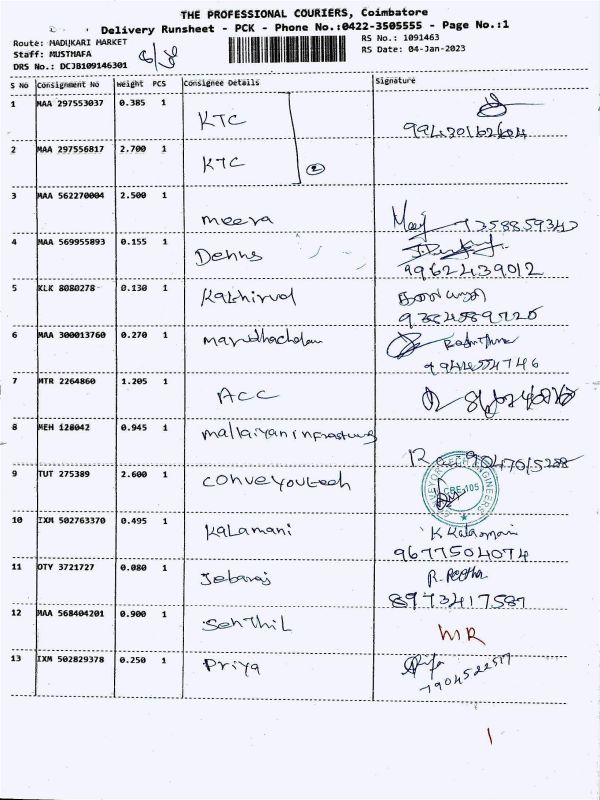 THE PROFESSIONAL COURIERS, Coimbatore
Delivery Runsheet - PCK - Phone No.:0422-3505555 - Page No.:1
Route: MADUKARI MARKET
RS No.: 1091463
Staff: MUSTHAFA
RS Date: 04-Jan-2023
DRS No.: DCJB109146301
S No Consignment No Weight PCS Consignee Details Signature
1 MAA 297553037 0.385 1 KTC
2 MAA 297556817 2.700 1 KTC 2
3 MAA 562270004 2.500 1 meera
4 MAA 569955893 0.155 1 Dennis
9962439012
5 KLK 8080278 0.130 1 Kathirvel
6 MAA 300013760 0.270 1 marudhachalam
7 MTR 2264860 1.205 1 ACC
8 MEH 128042 0.945 1
9 TUT 275389 2.600 1 conveyoutech
CONVEYOR TECH ENGINEERS
CBE-105
10 IXM 502763370 0.495 1 Kalamani K Kalamani
9677504074
11 OTY 3721727 0.080 1 Jebaraj R. Peetha
8973417587
12 MAA 568404201 0.900 1 Senthil MR
13 IXM 502829378 0.250 1 Priya
7904522517